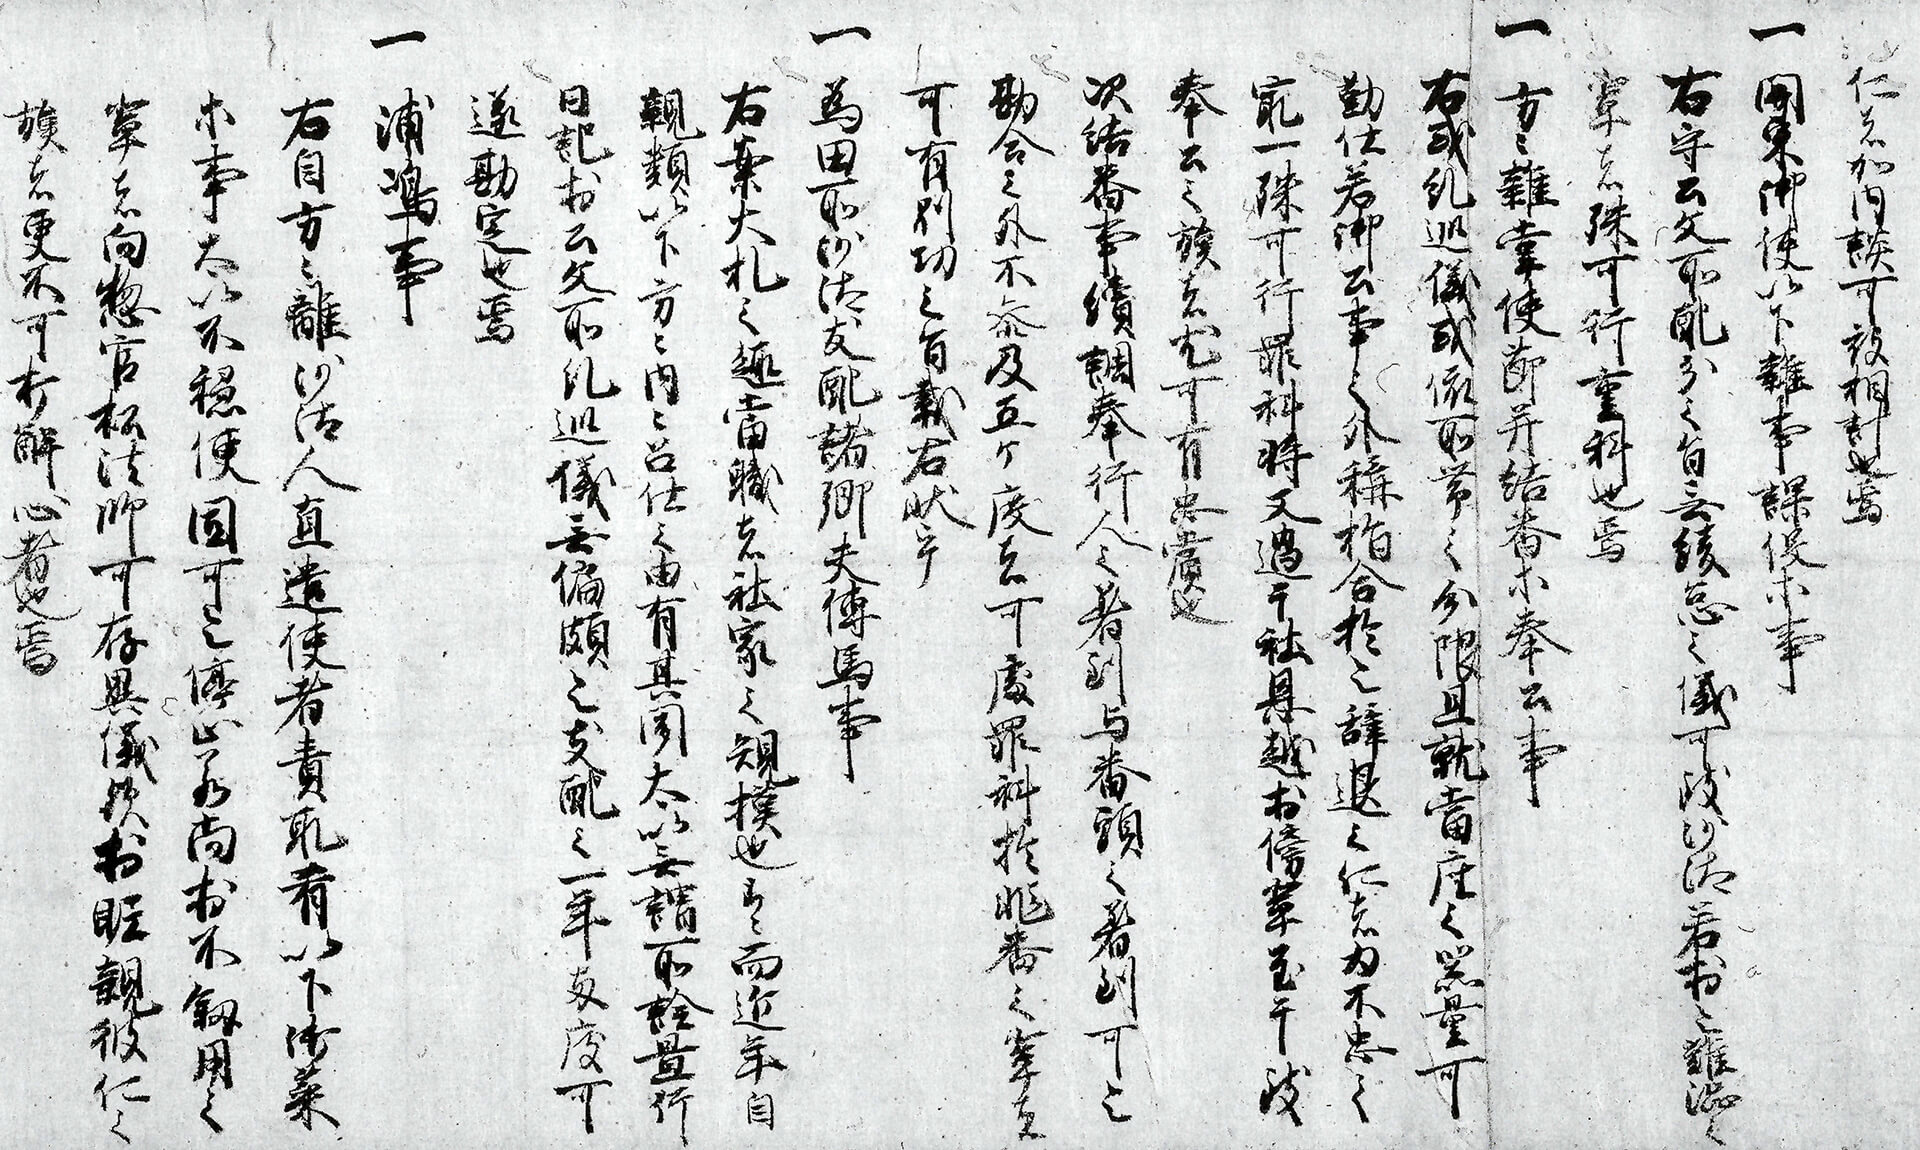 仁者加内談可被相計也焉
一関東御使以下雑事課役ホ事
右守公文所配分之旨無緩怠之儀可致沙汰若於令難渋之
輩者殊可行重科也焉
一方々雑掌使節并結番ホ奉公事
右或糺巡儀或依所帯之分限且就当座之器量可
勤仕若御公事之外稱指合於令辞退之仁者為不忠之
最一殊可行罪科将又遇于社具越於傍輩至于致
奉公之族者尤可有忠賞也
次結番事續調奉行人之着到与番頭之着到可令
勘合之外不參及五ケ度者可處罪科於非番之輩者
可有別功之旨載右状了
一為田所沙汰支配諸郷夫傳馬事
右棄大札之趣當職者社家之規模也云々而近年自
親類以下方々内々召仕之由有其聞太以無謂所詮置行
日記於公文所糺巡儀無偏頗令支配之一年両度可
遂勘定也焉
一浦嶋事
右自方々離沙汰人直遣使者責取肴以下海菜
ホ事太以不穏便固可令停止若尚於不叙用之
輩者向惣官相法師可存異儀然於眤親彼仁之
族者更不可打解心者也焉